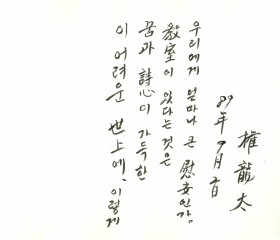 이 어려운 世上에, 이렇게
꿈과 詩心이 가득한
敎室이 있다는 것은
우리에게 얼마나 큰 慰安인가.
89年 9月 2日
權龍太